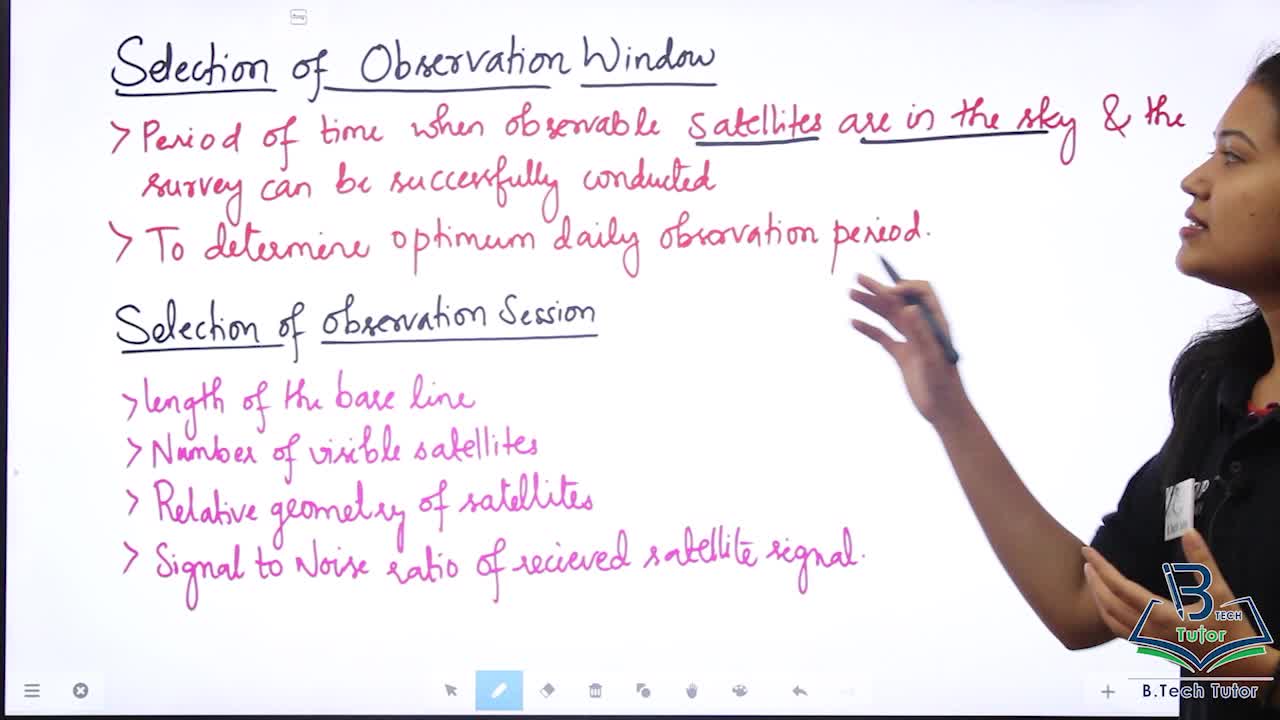 Selection of Observation Window
> Period of time when observable satellites are in the sky & the
survey can be successfully conducted
> To determine optimum daily observation period.
Selection of observation Session
> length of the base line
> Number of visible satellites
> Relative geometry of satellites
> Signal to Noise ratio of recieved satellite signal.
B
TECH
Tutor
B.Tech Tutor